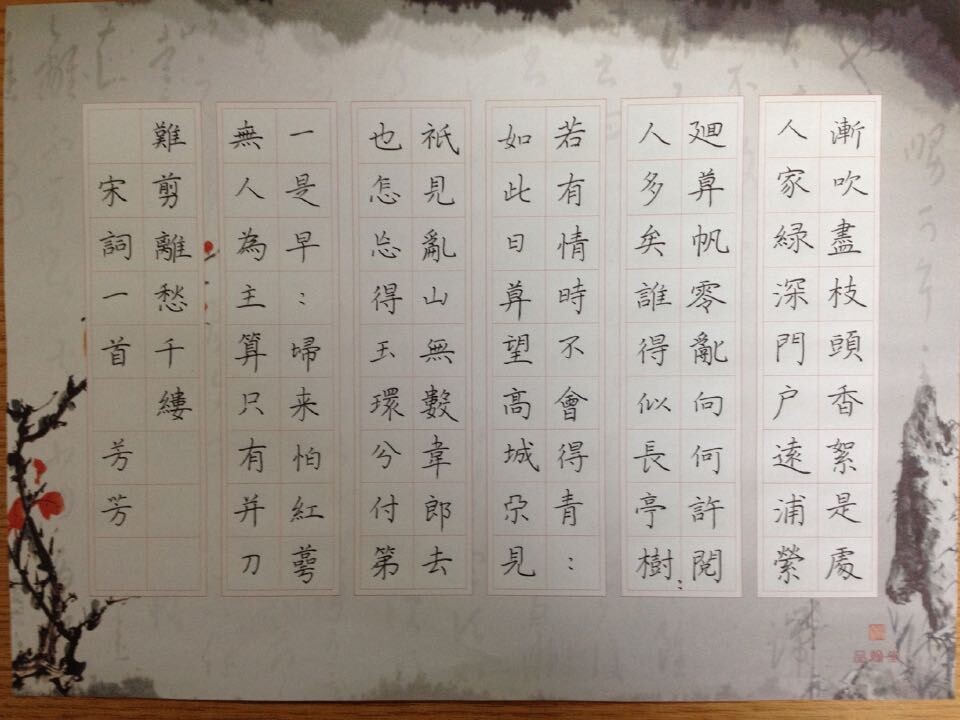 漸吹盡枝頭香絮是處
人家綠深門户遠浦縈
廻莫帆零亂向何許閱
人多矣誰得似長亭樹:
若有情時不會得青:
如此日莫望高城不見
祇見亂山無數韋郎去
也怎忘得玉環分付第
一是早:歸来怕紅萼
無人為主算只有并刀
難剪離愁千縷
宋詞一首 芳芳
品翰堂